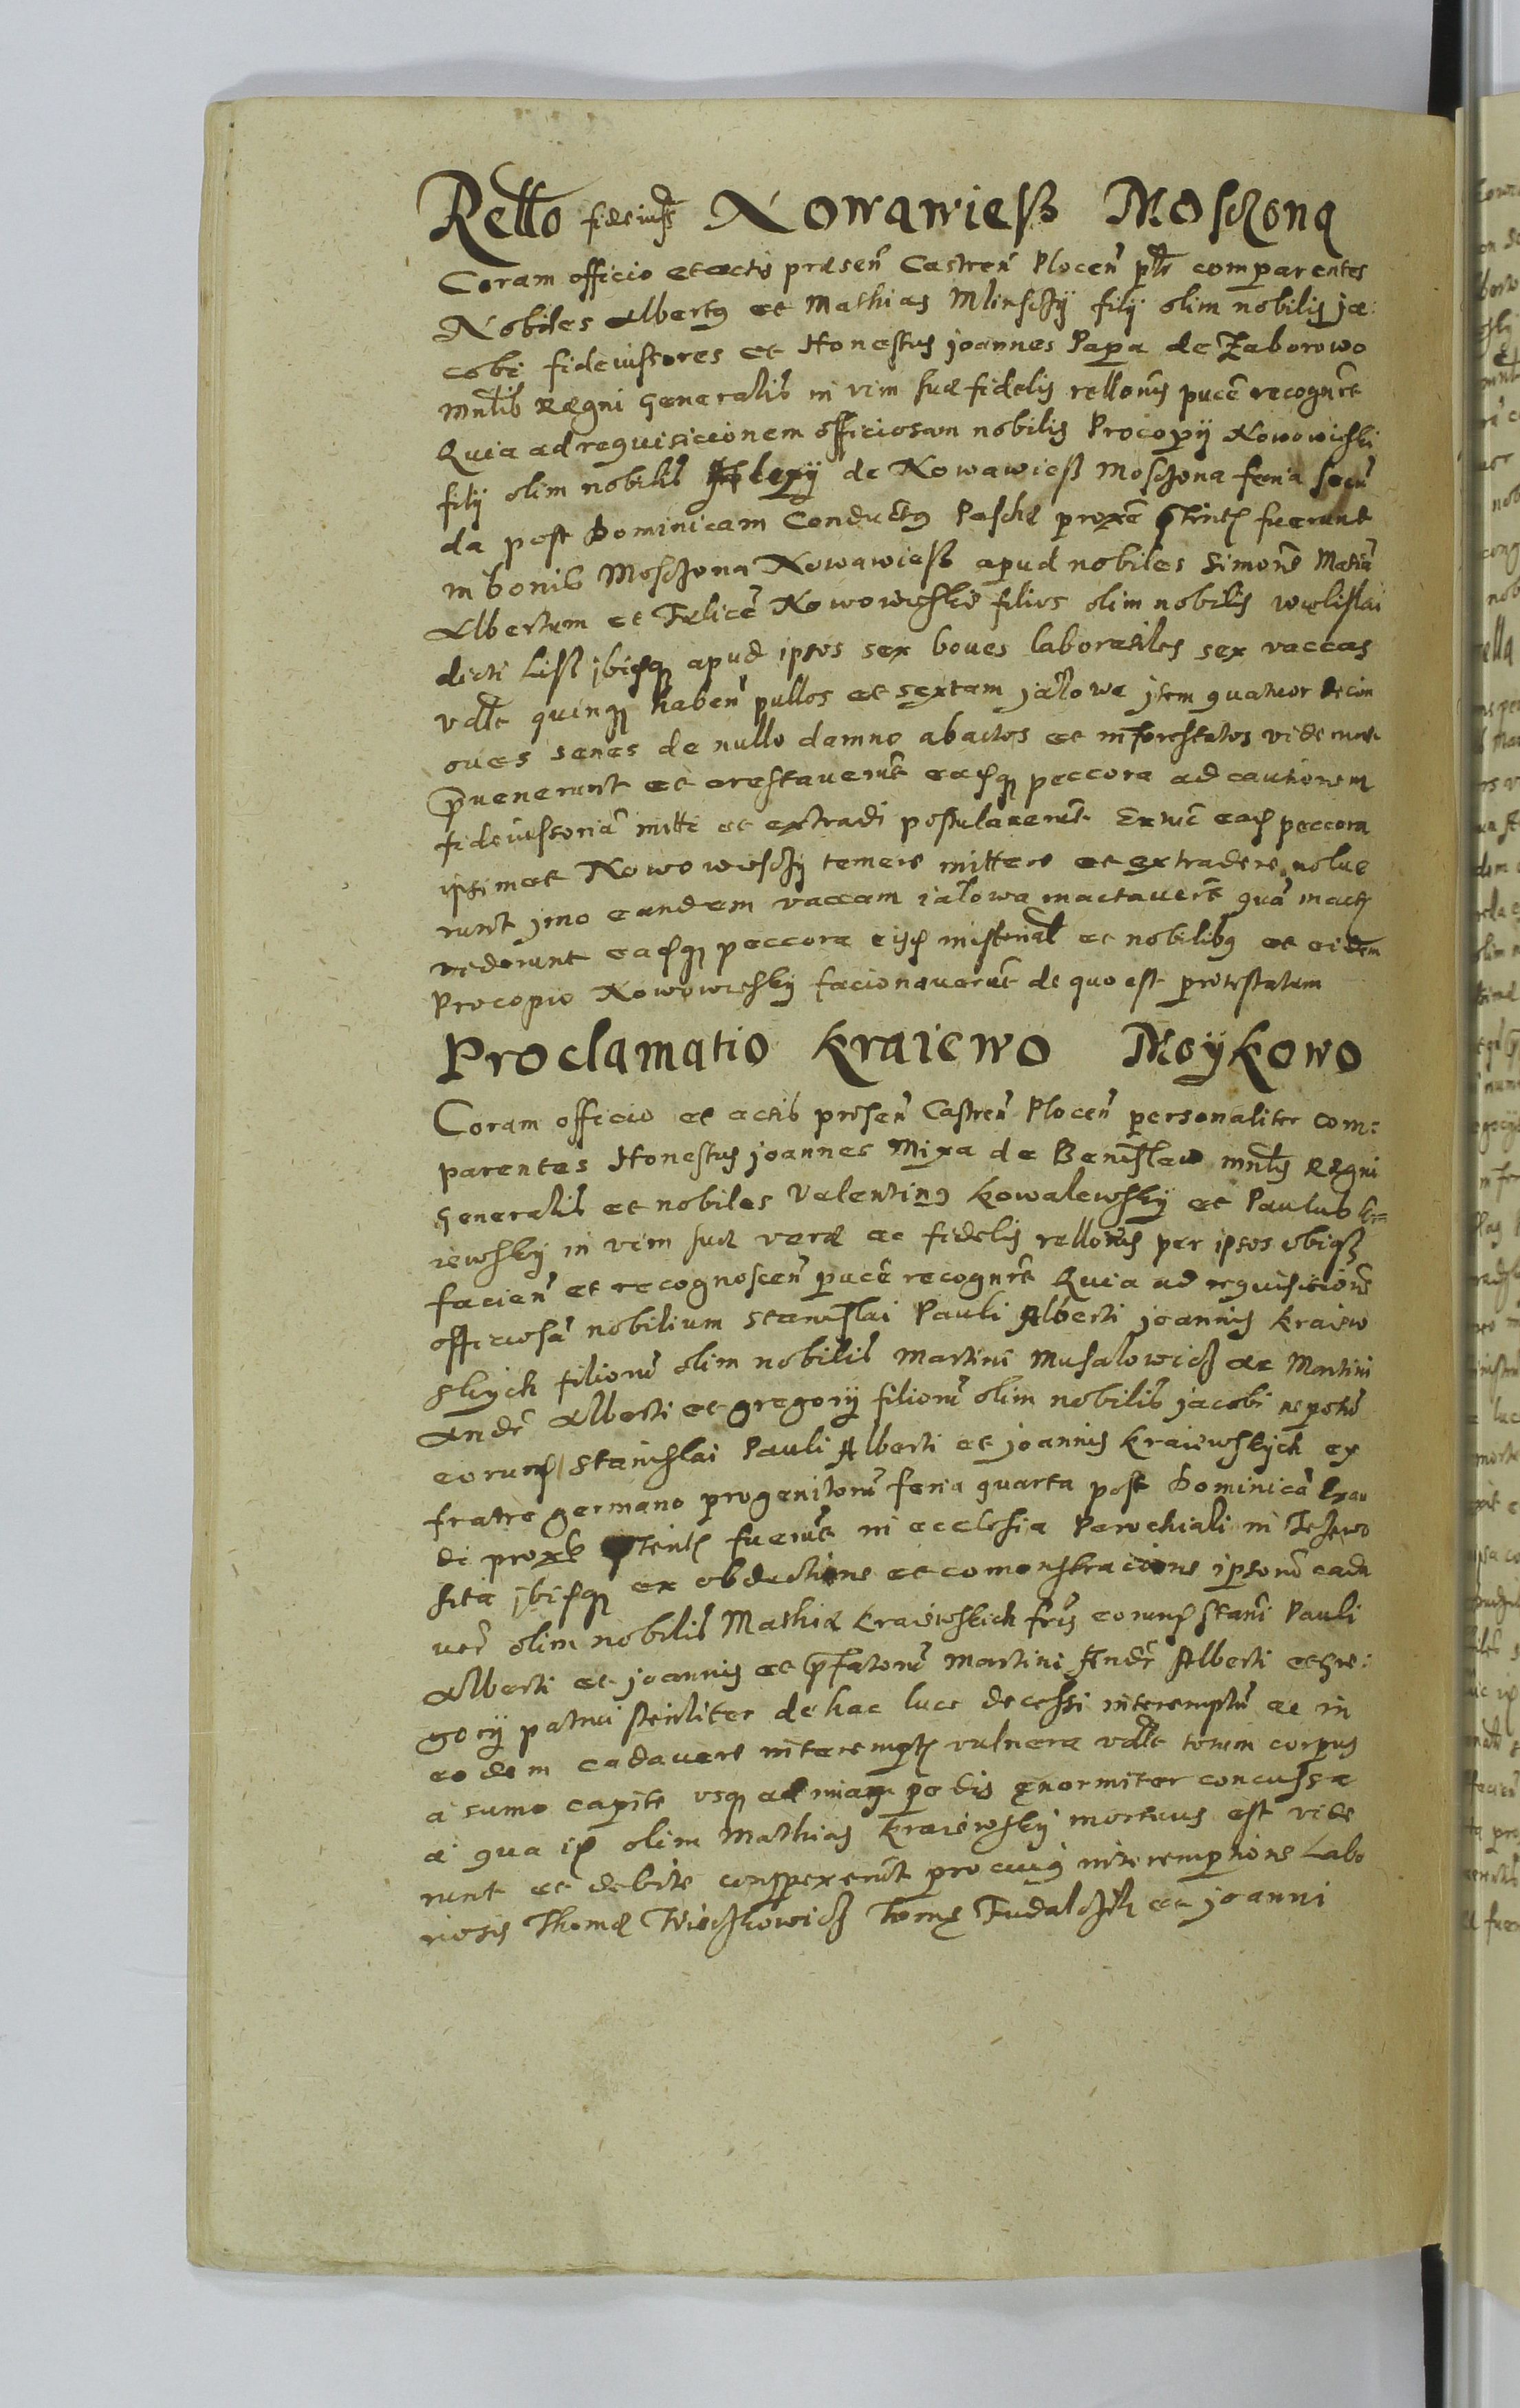 Rello fideiuss Nowawiess Moschona
Coram officio et actis præsen̄ Castren̄ Plocen̄ plr comparentes
Nobiles Albertus et Mathias Mlinsczÿ filÿ olim nobilis ja:
cobi fideiussores et Honestus joannes Papa de Zaborowo
mnlis Regni Generalis in vim suæ fidelis rellonis pucē recognrt
Quia ad requisicionem officiosam nobilis Procopÿ Nowowieski
filÿ olim nobilis Alexÿ de Nowawiess Moschona feria secū
da post Dominicam Conductus Paschæ proxe ptrits fuerunt
in bonis Moschona Nowawiess apud nobiles Simonē Mathiā
Albertum et Felicē Nowowieskie filios olim nobilis Wielislai
dicti Liss ibique apud ipsos sex boves laboratiles sex vaccas
vdlt quinque haben̄ pullos et sextam jalowa jtem quatuor decim
oves senes de nullo damno abactos et inforestatos viderunt
pvenerunt et arestaverūt easque peccora ad cautionem
fideiussoriā mitti et extradi postulaverūt Ex nūc eads peccora
ipsimet Nowowiesczÿ temere mittere et extradere nolue
runt jmo eandem vaccam jalowa mactaverūt quā mactas
viderunt easque peccora eisd misterial et nobilibus et eidem
Procopio Nowowiesky facionaverūt de quo est protestatum
Proclamatio Kraiewo Moÿkowo
Coram officio et actis præsen̄ Castren̄ Plocen̄ personaliter com=
parentes Honestus joannes Mixa de Benislaw mnlis Regni
Generalis et nobiles Valentinus Kowalewskÿ et Paulus Kra=
iewskÿ in vim suæ veræ ac fidelis rellonis per ipsos obiqz
facien̄ et recognoscen̄ pucē recognrt Quia ad requisicionē
officiosā nobilium Stanislai Pauli Alberti joannis Kraiew
skych filiorū olim nobilis Martini Musalowicz ac Martini
Andr Alberti et gregorÿ filiorū olim nobilis jacobi nepotū
eorund Stanislai Pauli Alberti et joannis Kraiewskÿch ex
fratre germano progenitorū feria quarta post Dominicā Exau
di proxe ptrits fuerūt in ecclesia Parochiali in Jezewo
sita jbique ex obductione et comonstracione ipsorū cada
ver olim nobilis Mathiæ Kraiewskich fris eorund Stani Pauli
Alberti et joannis et pfatorū Martini Andr Alberti et Gre:
gorÿ patrui steriliter de hac luce decessi interemptū ac in
eodem cadavere interempti vulnera vdlt totum corpus
a sumo capite usque ad pedis enormiter concussa
a qua is olim Mathias Kraiewskÿ mortuus est vide
runt et debite conspexerūt pro cuius interempcione Labo
riosis Thomæ Kowicz et joanni